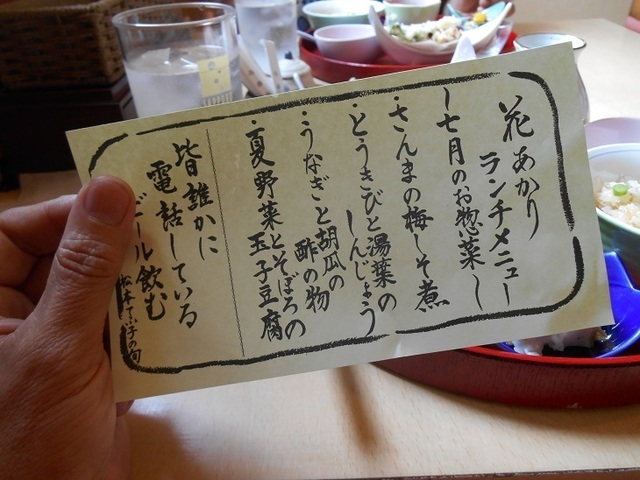 花あかり
ランチメニュー
〜七月のお惣菜〜
・さんまの梅しそ煮
・とうきびと湯葉の
しんじょう
・うなぎと胡瓜の
酢の物
・夏野菜とそぼろの
玉子豆腐
皆誰かに
電話している
ビール飲む
の句